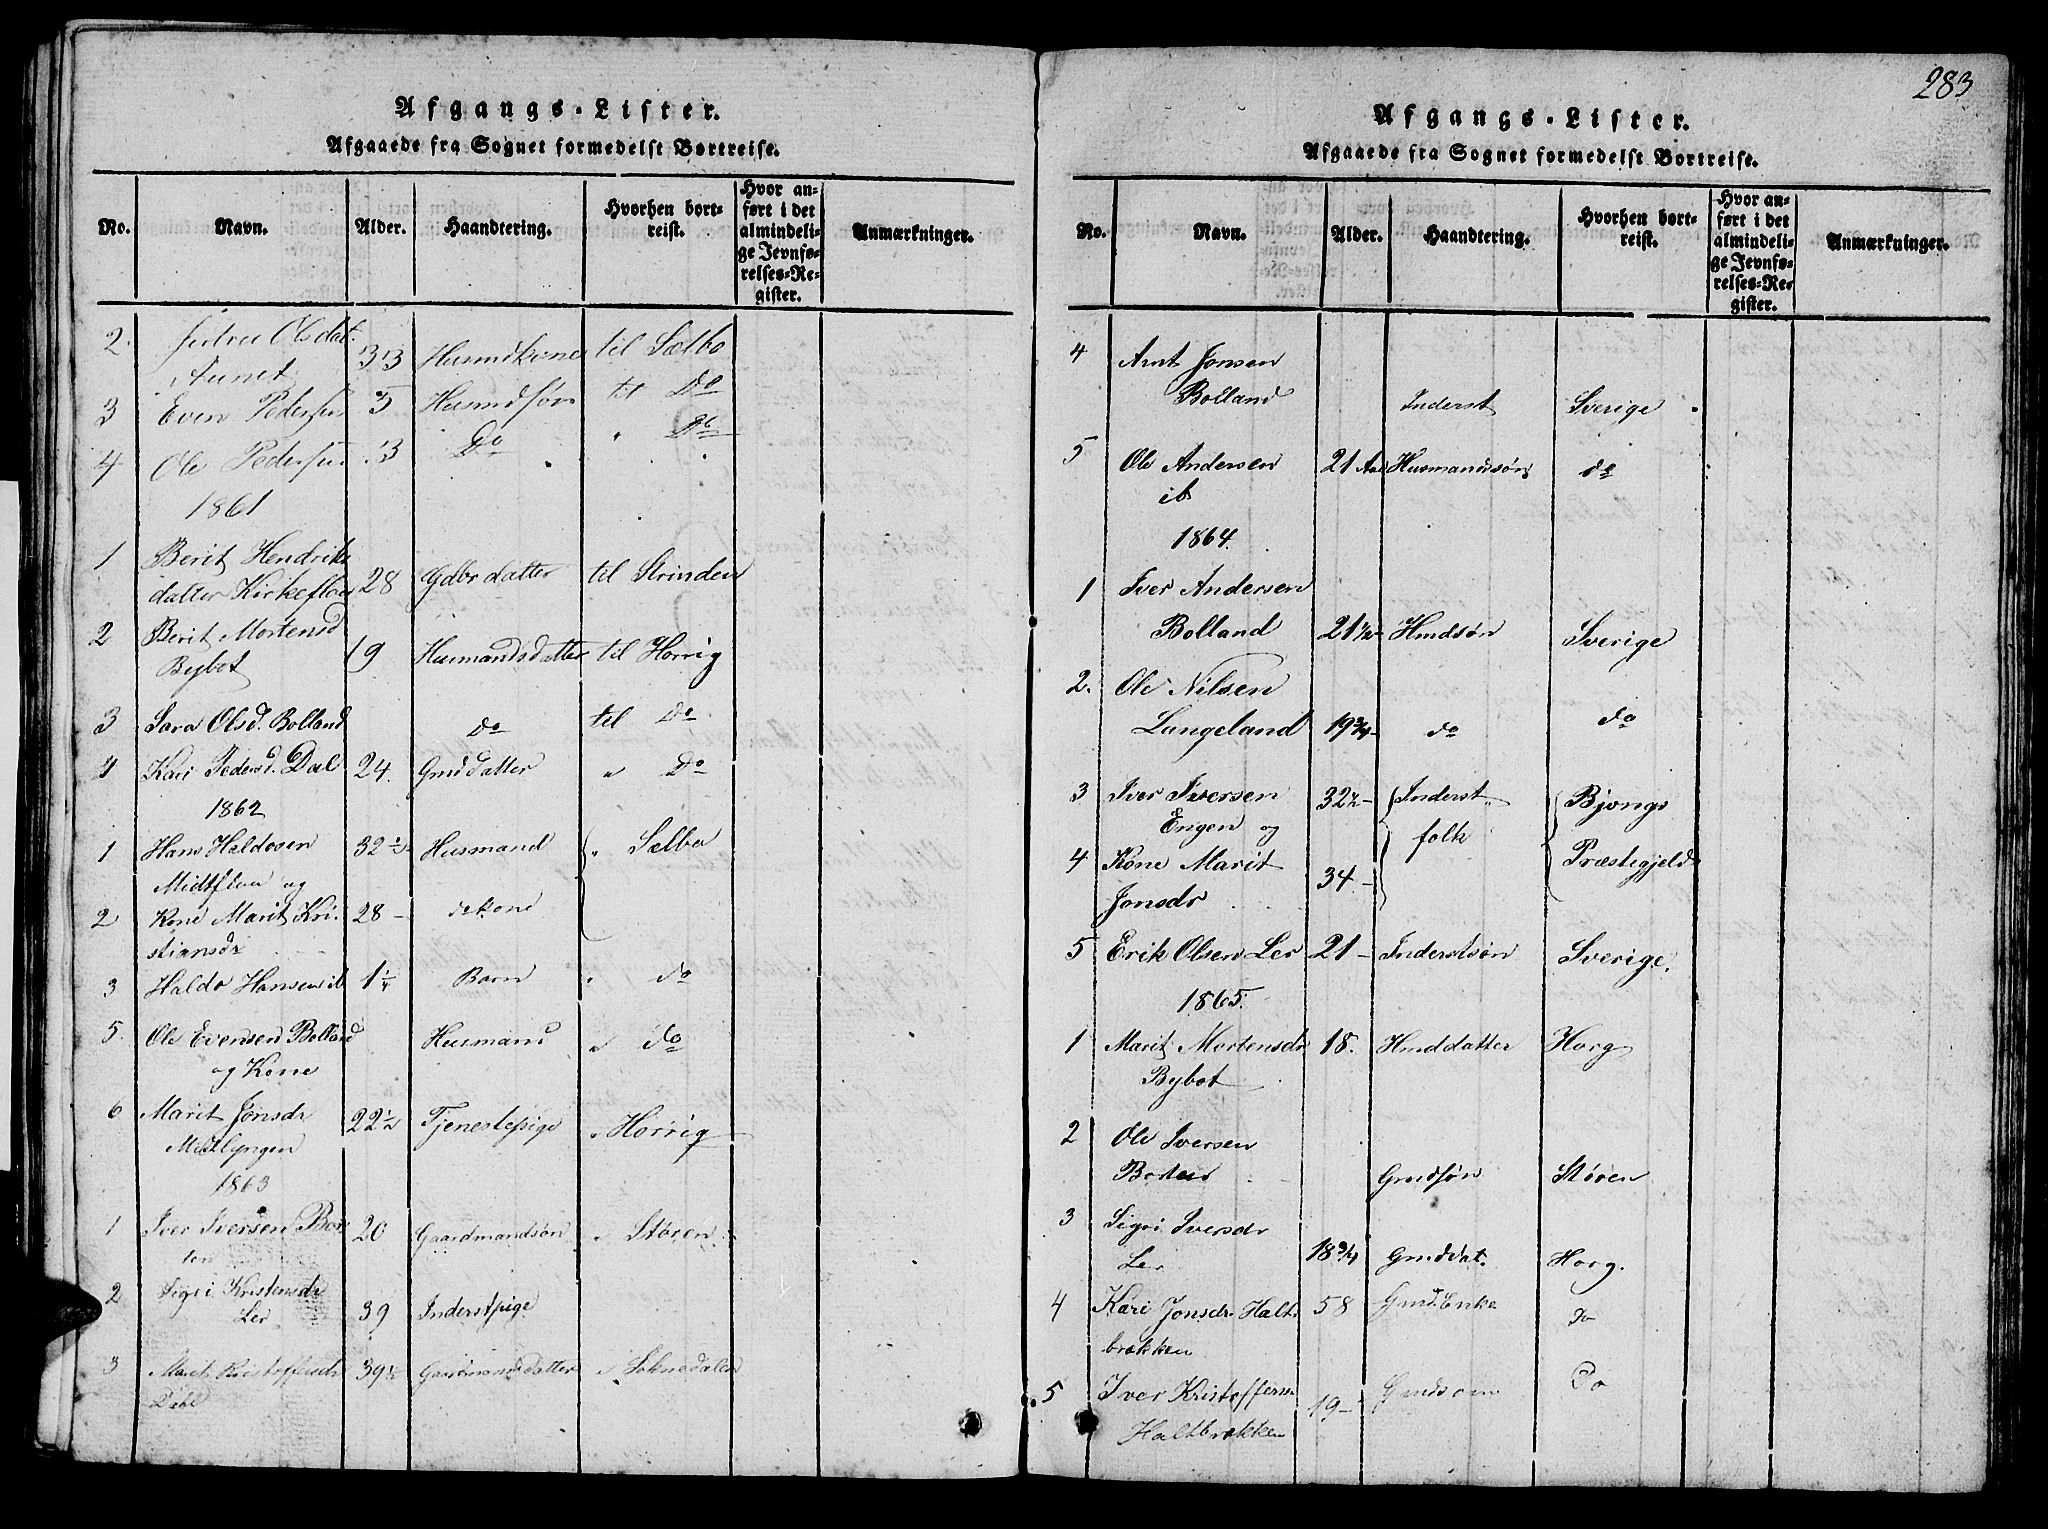 283
Afgangs-Lister.
Afgaaede fra Sognet formedelst Bortreise.
No. Navn. Alder. Haandtering. Hvorhen bortreist. Hvor anført i det almindelige Jevnførelses-Register. Anmærkninger.
2. Olsdat. 33 Husmdkone til Sælbo
Aunet
3 Even Pedersen 5 Husmdsøn til Do
4 Ole Pedersen 3 Do " Do
1861
1 Berit Hendriks
datter Kirkefloe 28 Gdbrdatter til Strinden
2 Berit Mortensd
Bybot 19 Husmandsdatter til Horrig
3 Sara Olsd. Bolland do til Do
4 Kari Pedersd. Dal 24. Gmddatter " Do
1862
1 Hans Haldosen 32 1/2 Husmand " Sælbo
Midtfloe og
2 Kone Marit Kri- 28 - do kone
stiansdr
3 Haldo Hansen ib 1 1/4 Barn " do
5. Ole Evensen Bolland Husmand " do
og Kone
6 Marit Jonsdr 22 1/2 Tjenestepige " Horrig
Midtlyngen
1863
1 Iver Iversen Bor 20 Gaardmandsøn " Støren
ten
2 Sigri Kristensdr
Ler 39 Inderstpige
3 Marit Kristoffersdr 39 1/2 Gaardmandsdatter " Soknedalen
Dahl
Afgangs-Lister.
Afgaaede fra Sognet formedelst Bortreise.
No. Navn. Alder. Haandtering. Hvorhen bortreist. Hvor anført i det almindelige Jevnførelses-Register. Anmærkninger.
4 Arnt Jonsen
Bolland Inderst Sverige
5 Ole Andersen 21 Aar Husmandssøn do
ib
1864.
1 Iver Andersen
Bolland 21 1/2 Hmdsøn Sverige
2. Ole Nilsen
Langeland 19 3/4 - do do
3 Iver Iversen 32 1/2 - Inderst Bjongs
Engen og folk
4 Kone Marit 34 - Præstegjeld
Jonsdr
5 Erik Olsen Ler 21 - Inderstsøn Sverige.
1865.
1 Marit Mortensdr 18. Hmddatter Horg
Bybot
2 Ole Iversen
Gmdsøn Støren
3 Sigri Iversdr
Ler 18 3/4 Gmddat. Horg.
4 Kari Jonsdr. Halt- 58 Gmd. Enke do
brekken
5 Iver Kristoffersn 19 - Gmdsøn Do
Haltbrekken